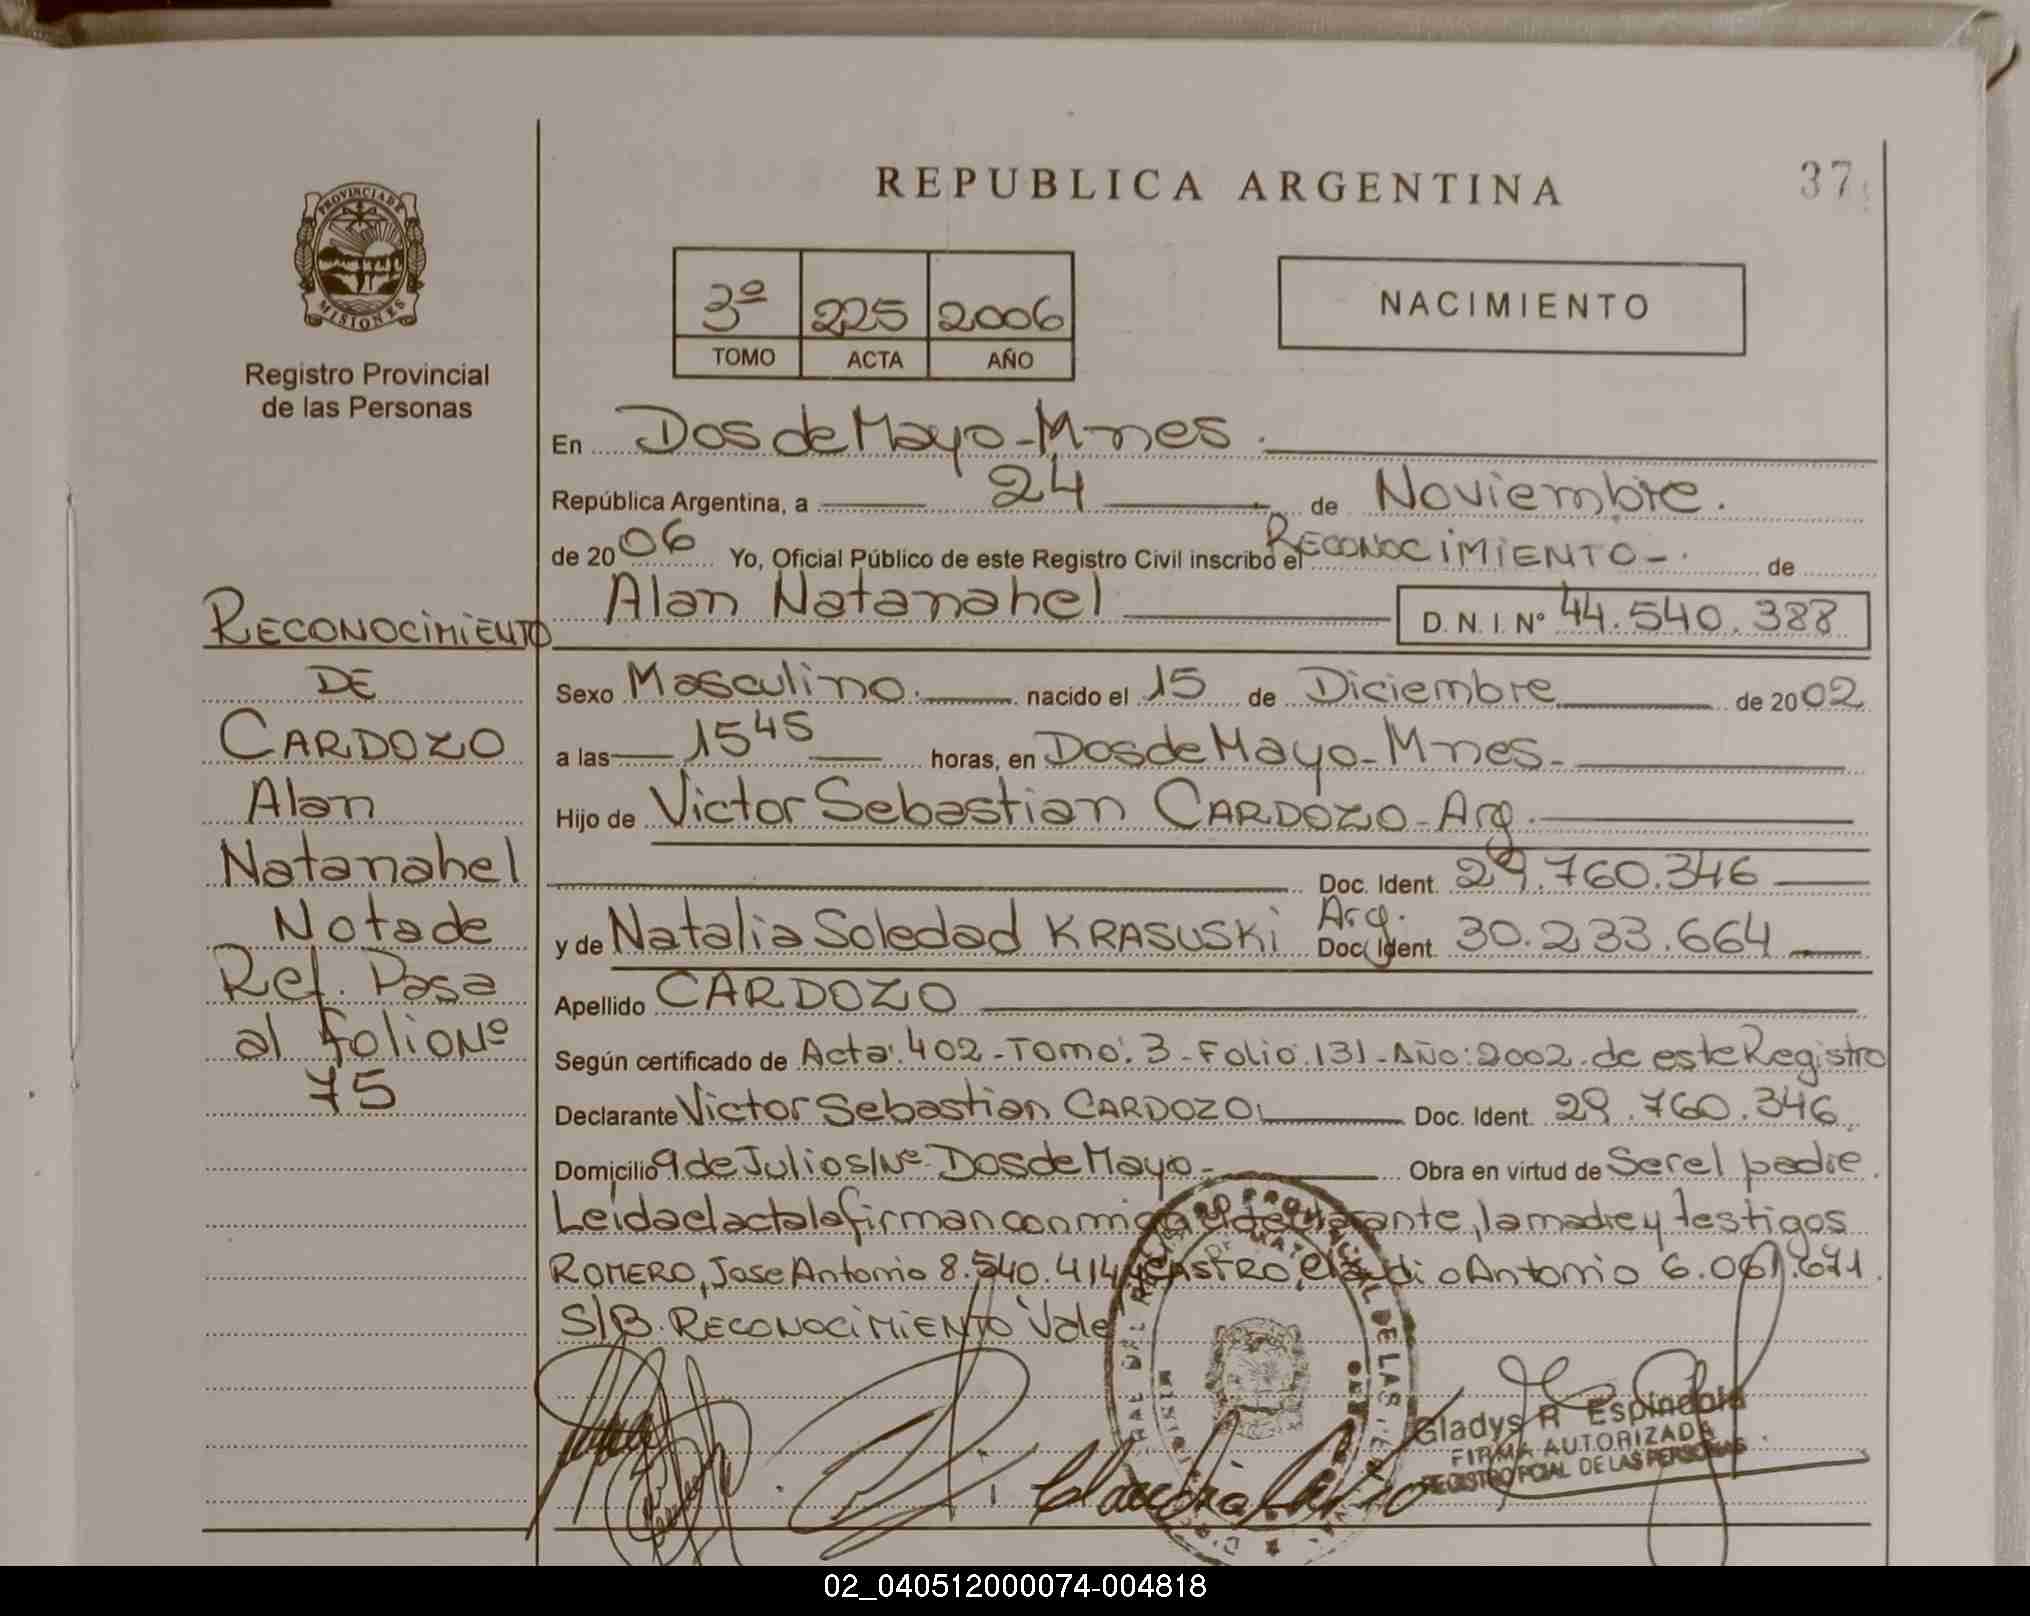 REPUBLICA ARGENTINA
37
PROVINCIA DE
MISIONES
Registro Provincial
de las Personas
3º 225 2006
TOMO ACTA AÑO
NACIMIENTO
En Dos de Mayo-Mnes.
República Argentina, a 24 de Noviembre.
de 2006 Yo, Oficial Público de este Registro Civil inscribo el RECONOCIMIENTO-. de
Alan Natanahel D.N.I. Nº 44.540.388
Sexo Masculino. nacido el 15 de Diciembre de 2002
a las 15 45 horas, en Dos de Mayo-Mnes-
Hijo de Victor Sebastian CARDOZO-Arg.
Doc. Ident. 29.760.346
y de Natalia Soledad KRASUSKI Arg. Doc. Ident. 30.233.664
Apellido CARDOZO
Según certificado de Acta: 402-Tomo: 3-Folio: 131-Año: 2002. de este Registro
Declarante Victor Sebastian CARDOZO Doc. Ident. 29.760.346.
Domicilio 9 de Julio S/Nº-Dos de Mayo- Obra en virtud de Ser el padre.
Leida el acta la firman conmigo el declarante, la madre y testigos
ROMERO, Jose Antonio 8.540.414 y CASTRO, Claudio Antonio 6.061.671.
S/B. RECONOCIMIENTO Vale
RECONOCIMIENTO
DE
CARDOZO
Alan
Natanahel
Nota de
Ref. Pasa
al folio Nº
75
Gladys R Espindola
FIRMA AUTORIZADA
REGISTRO PCIAL DE LAS PERSONAS
02_040512000074-004818